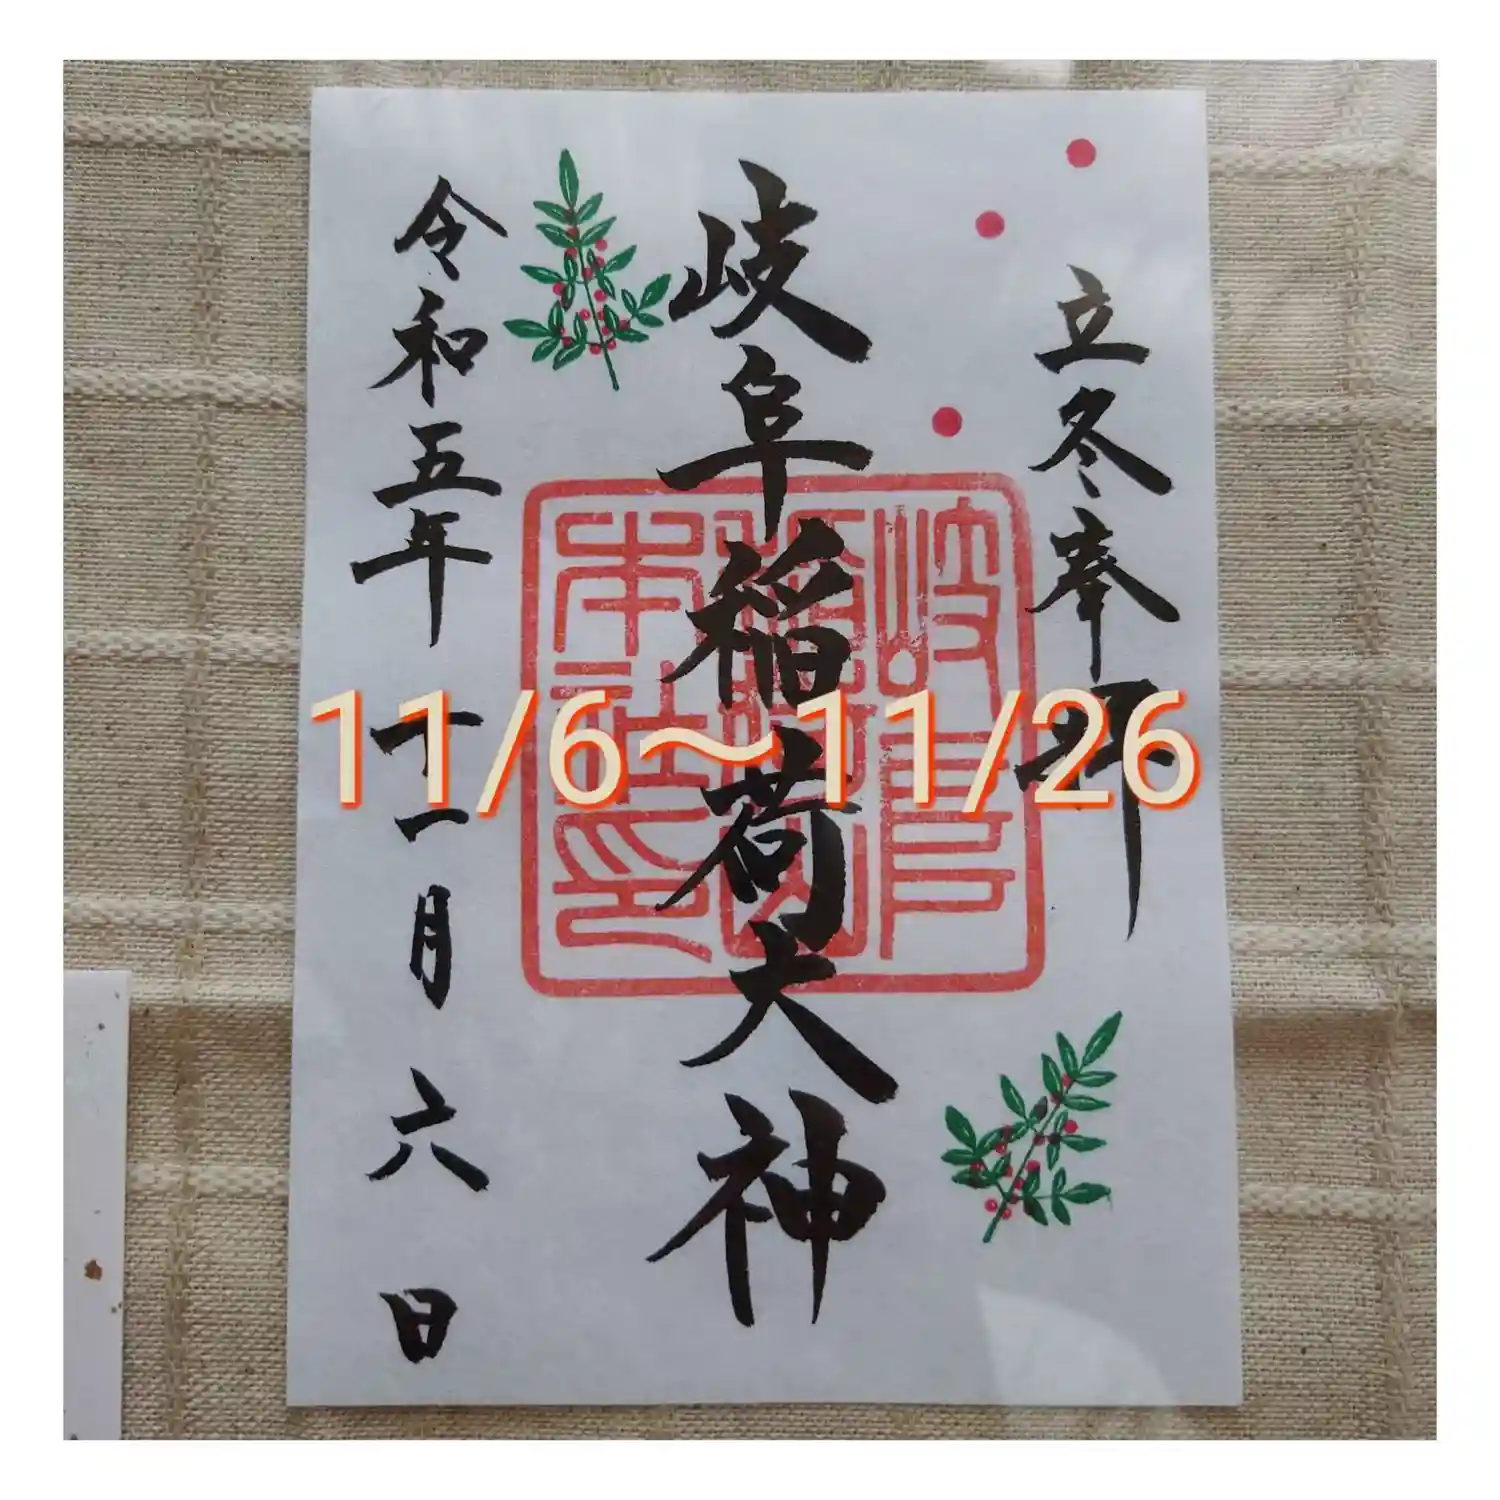 立冬奉拝
岐阜稲荷大神
令和五年十一月六日
岐阜
稲荷山
本社印
11/6〜11/26